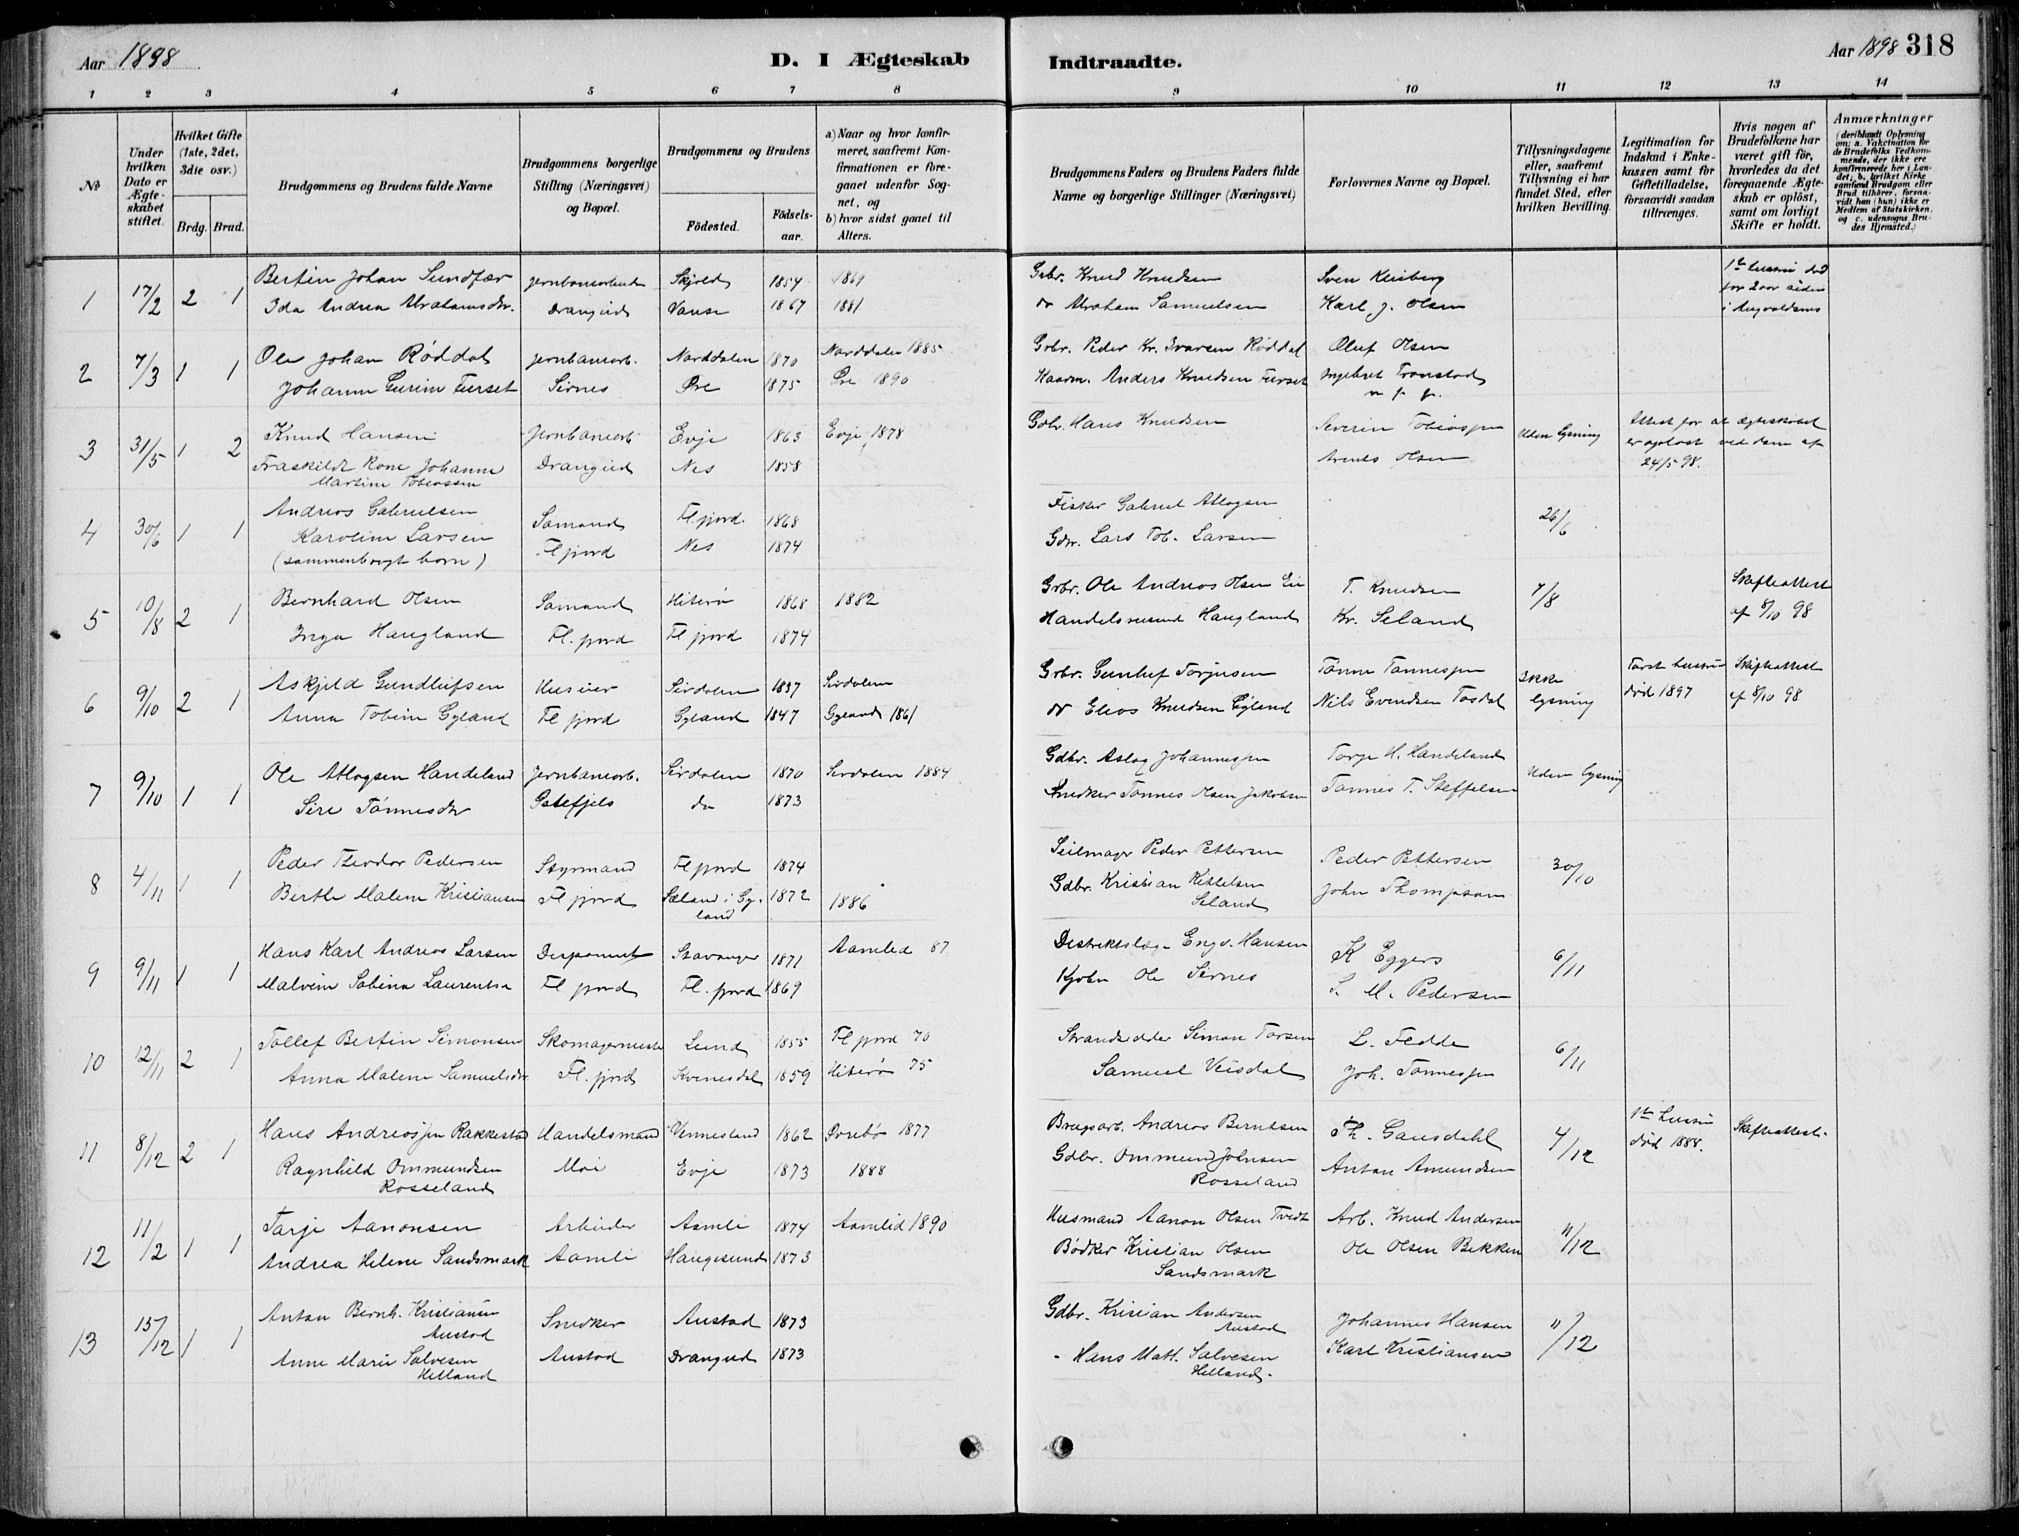 Aar 1898
D. I Ægteskab
Indtraadte.
Aar 1898 318
1 2 3 4 5 6 7 8 9 10 11 12 13 14
№
Under hvilken Dato er Ægteskabet stiftet.
Hvilket Gifte (1ste, 2det, 3die osv.)
Brdg. Brud.
Brudgommens og Brudens fulde Navne
Brudgommens borgerlige Stilling (Næringsvei) og Bopæl.
Brudgommens og Brudens
Fødested.
Fødselsaar.
a) Naar og hvor konfirmeret, saafremt Konfirmationen er foregaaet udenfor Sognet, og
b) hvor sidst gaaet til Alters.
Brudgommens Faders og Brudens Faders fulde Navne og borgerlige Stillinger (Næringsvei)
Forlovernes Navne og Bopæl.
Tillysningsdagene eller, saafremt Tillysning ei har fundet Sted, efter hvilken Bevilling.
Legitimation for Indskud i Enkekassen samt for Giftetilladelse, forsaavidt saadan tiltrænges.
Hvis nogen af Brudefolkene har været gift før, hvorledes da det foregaaende Ægteskab er opløst, samt om lovligt Skifte er holdt.
Anmærkninger
(deriblandt Oplysning om: a. Vaccination for de Brudefolks Vedkommende, der ikke ere konfirmerede her i Landet; b. hvilket Kirkesamfund Brudgom eller Brud tilhører, forsaavidt han (hun) ikke er Medlem af Statskirken, og c. udensogns Brudes Hjemsted.)
1 17/2 2 1 Bertin Johan Sundfær Jernbanearbeid Skjold 1854 1869 Grbr. Knud Knudsen Sven 1ste hustru død
Ida Andrea Abrahamsdtr. Drangeid Vanse 1867 1881 do Abraham Samuelsen Karl J. Olsen for 2 aar siden
i Augvaldsnes
2 7/3 1 1 Ole Johan Røddal Jernbanearb. Norddalen 1870 Norddalen 1885 Grbr. Peder Kr. Ivarsen Røddal Oluf Olsen
Johanne Gurine Furset Sirnes Øre 1875 Øre 1890 Anders Knudsen Furset Ingebret Tronstad
3 31/5 1 2 Knud Hansen Jernbanearb. Evje 1863 Evje 1878 Gdbr. Hans Knudsen Severin Tobiassen Uden lysning Attest for at ægteskabet
Fraskildt Kone Johanne Drangeid Nes 1858 Olsen er opløst ved dom af
Martine Tobiassen 24/5 98.
4 30/6 1 1 Andreas Gabrielsen Sømand Fl.fjord. 1868 Fisker Gabriel Atlagsen 26/6
Karoline Larsen Fl.fjord Nes 1874 Gdbr. Lars Tob. Larsen
(sammenbragt barn)
5 10/8 2 1 Bernhard Olsen Sømand Hiterø 1868 1882 Grbr. Ole Andreas Olsen T. Knudsen 7/8 Skifteattest
Inga Haugland Fl. fjord Fl fjord 1874 Haugland Kr. Seland af 8/10 98
6 9/10 2 1 Askjeld Gundleifsen Huseier Sirdalen 1837 Sirdalen Grbr. Gunluf Torjusen Tønne Tønnessen Ikke Første hustru Skifteattest
Anna Tobine Gyland Fl fjord Gyland 1847 Gyland 1861 do Elias Knudsen Gyland Nils Evendsen Tosdal lysning død 1897 af 8/10 98
7 9/10 1 1 Ole Atlagsen Handeland Jernbanearb. Sirdalen 1870 Sirdalen 1884 Gdbr. Aslag Johannessen Torje H. Handeland Uden lysning
Sire Tønnesdtr do 1873 Snedker Tønnes Olsen Jakobsen Tønnes T. Steffelsen
8 4/11 1 1 Peder Theodor Pedersen Styrmand Fl fjord 1874 Seilmager Peder Pettersen Peder Pettersen 30/10
Berthe Malene Kristiansen Fl fjord Sæland i Gyland 1872 1886 Gdbr. Kristian Kittelsen John Thompson
Seland
9 9/11 1 1 Hans Karl Andreas Larsen Stavanger 1871 Aamlid 87 Distriktslæge Engv. Hansen K Eggers 6/11
Malvine Sabina Fl fjord Fl. fjord 1869 Kjøbm Ole Sirnes S. M. Pedersen
10 12/11 2 1 Tollef Bertin Simonsen Skomagermester Lund 1855 Fl fjord 70 Strandsidder Simon Torsen L. Fedde 6/11
Anna Malene Samuelsdtr Fl. fjord Kvinesdal 1859 Hiterø 75 Samuel Veisdal Joh. Tønnessen
11 8/12 2 1 Hans Andreassen Rakkestad Handelsmand Vennesland 1862 Øvrebø 1877 Brugsarb. Andreas Berntsen Th. Gausdahl 4/12 1ste hustru Skifteattest.
Ragnhild Ommundsen Moi Evje 1873 1888 Gdbr. Ommund Johnsen Anton Amundsen død 1888.
Rosseland Rosseland
12 11/12 1 1 Tarje Aanonsen Arbeider Aamli 1874 Aamlid 1890 Husmand Aanon Olsen Tvedt Arb. Knud Andersen 11/12
Andrea Helene Sandsmark Aamli Haugesund 1873 Bødker Kristian Olsen Ole Olsen Bekken
Sandsmark
13 15/12 1 1 Anton Bernh. Kristiansen Snedker Austad 1873 Gdbr. Kristian Andersen Johannes Hansen 11/12
Austad Austad
Anne Marie Salvesen Austad Drangeid 1873 - Hans Matt. Salvesen Karl Kristiansen
Helland Helland.